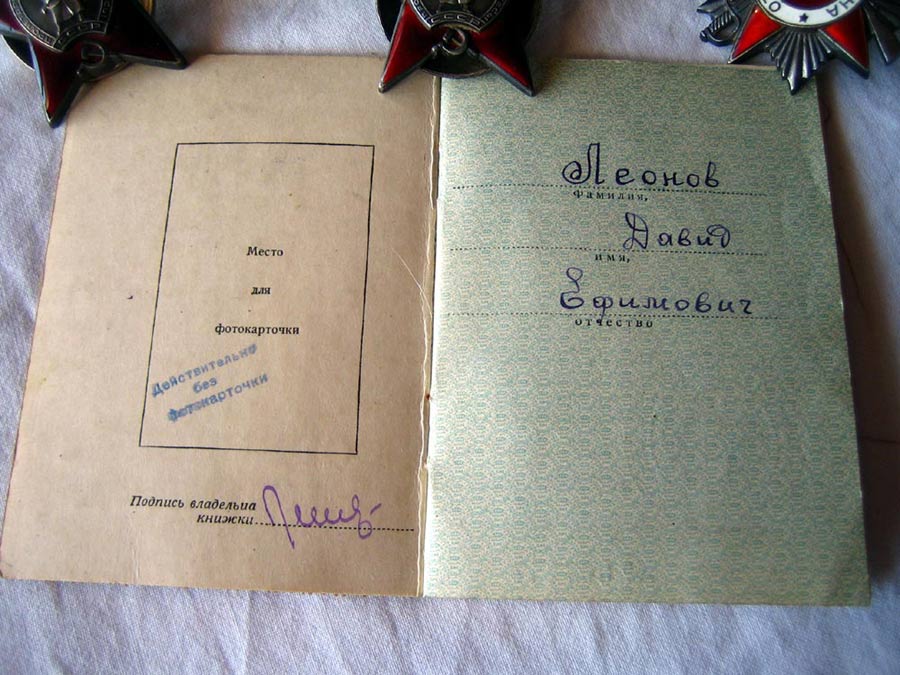 Место
для
фотокарточки
Действительно
без
фотокарточки
Подпись владельца
книжки
Леонов
фамилия,
Давид
имя,
Ефимович
отчество